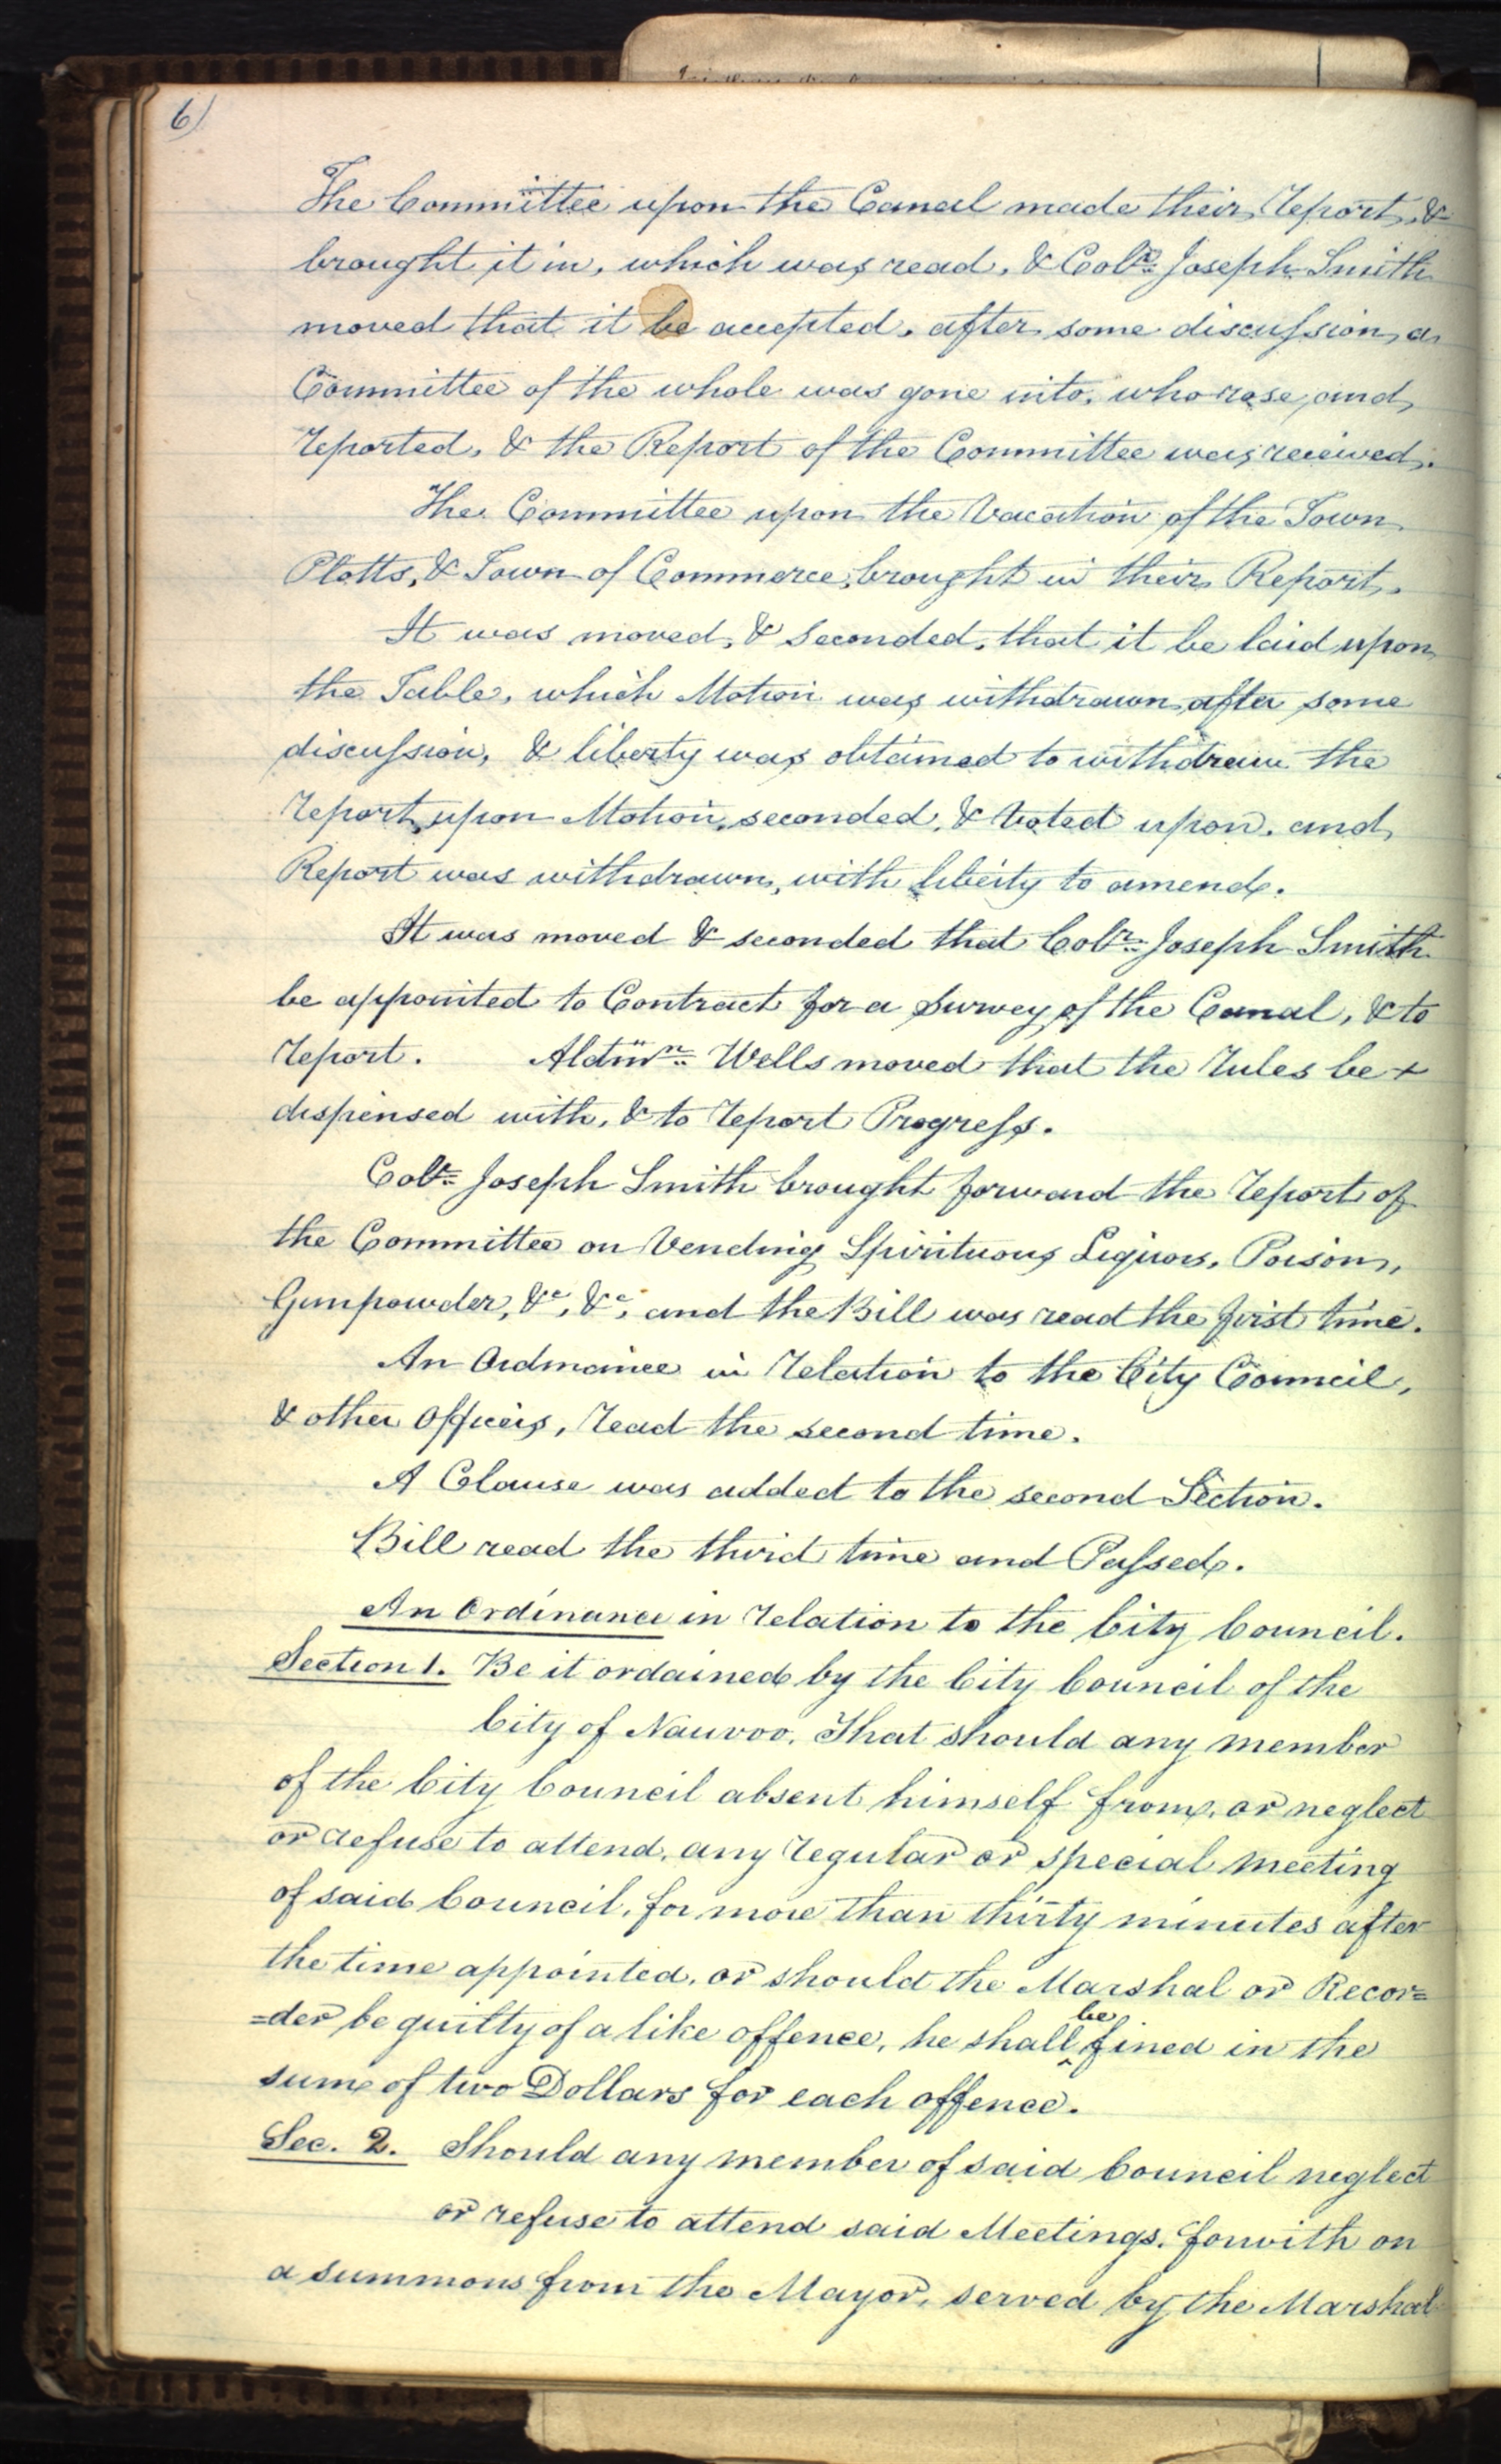 6)
The Committee upon the Canal made their Report, &
brought it in, which was read, & Colr. Joseph Smith
moved that it be accepted, after some discussion, a
Committee of the whole was gone into, who rose, and
reported, & the Report of the Committee was received.
The Committee upon the Vacation of the Town
Plotts, & Town of Commerce, brought in their Report.
It was moved, & Seconded, that it be laid upon
the Table, which Motion was withdrawn, after some
discussion, & liberty was obtained to withdraw the
Report, upon Motion, seconded, & Voted upon. and
Report was withdrawn, with liberty to amend.
It was moved & seconded that Colr. Joseph Smith
be appointed to Contract for a Survey of the Canal, & to
report. Aldmn. Wells moved that the rules be
dispensed with, & to report Progress.
Colr. Joseph Smith brought forward the report of
the Committee on Vending Spirituous Liquors, Poison,
Gunpowder, &c, &c, and the Bill was read the first time.
An Ordinance in relation to the City Council,
& other Officers, read the second time.
A Clause was added to the second Section.
Bill read the third time and Passed.
An Ordinance in relation to the City Council.
Section 1. Be it ordained by the City Council of the
City of Nauvoo, That should any member
of the City Council absent himself from, or neglect
or refuse to attend, any regular or special meeting
of said Council, for more than thirty minutes after
the time appointed, or should the Marshal or Recor=
=der be guilty of a like offence, he shall be fined in the
sum of two Dollars for each offence.
Sec. 2. Should any member of said Council neglect
or refuse to attend said Meetings, forwith on
a summons from the Mayor, served by the Marshal